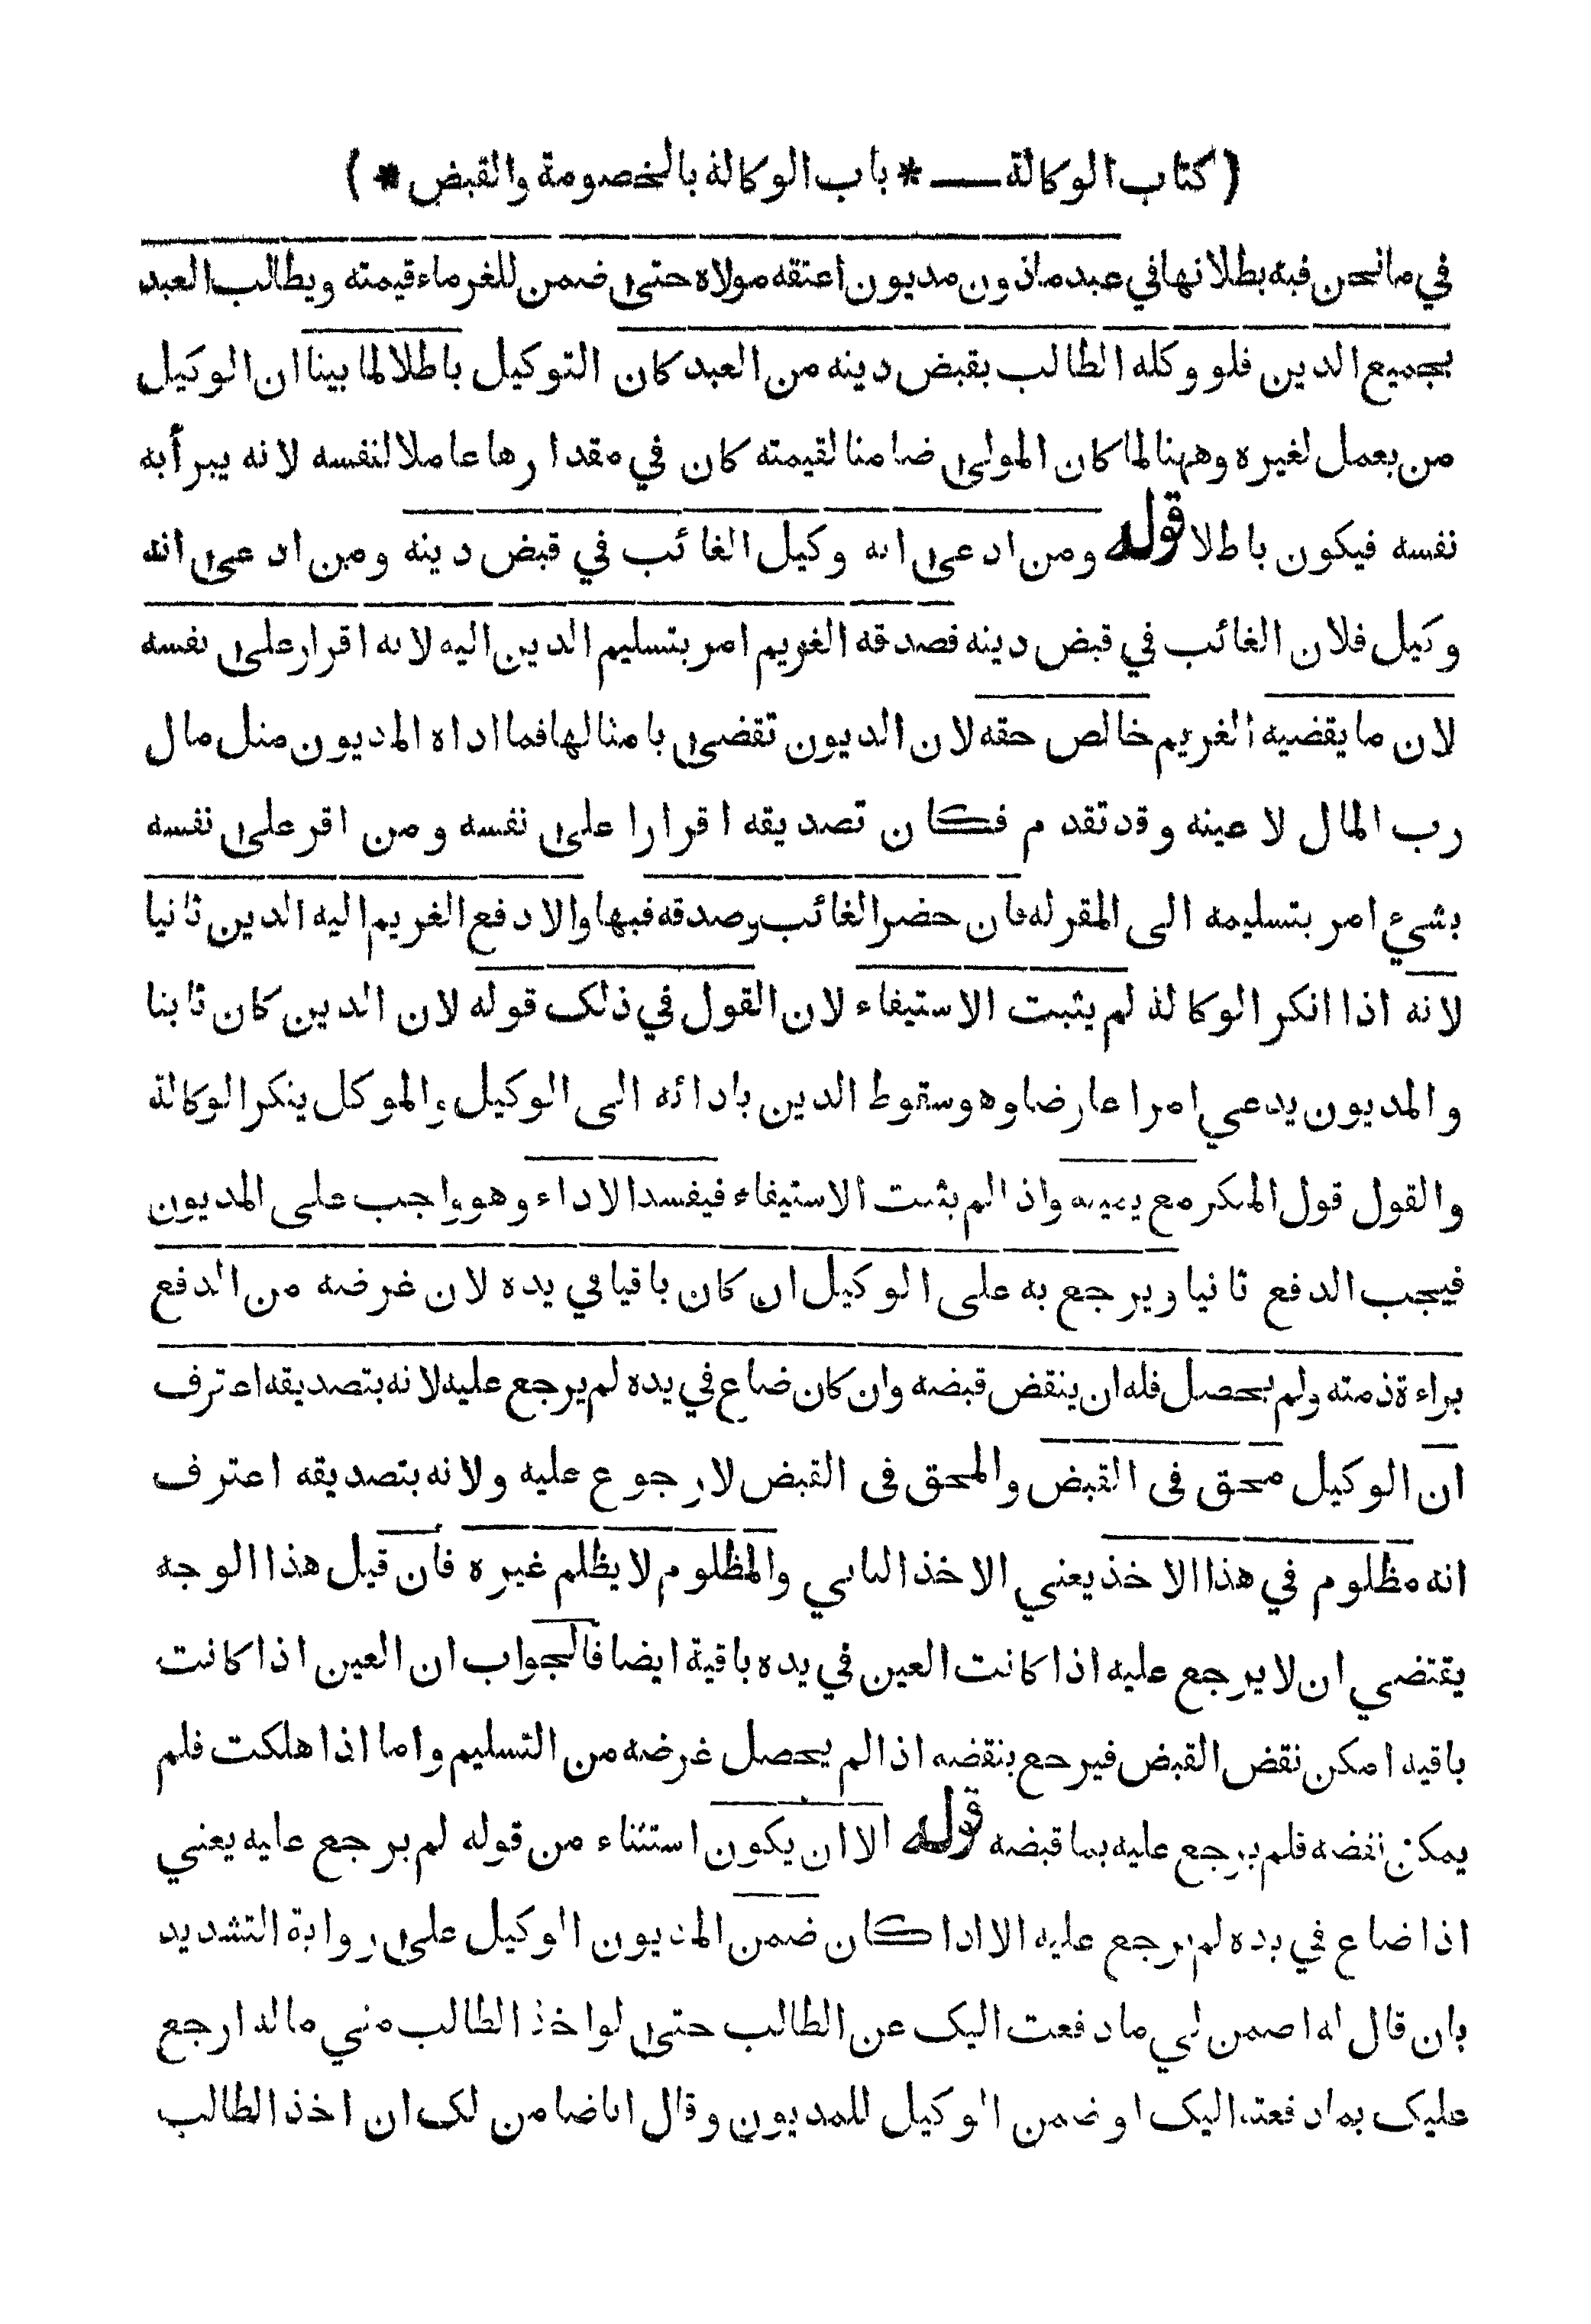 ( كتاب الوكالة — * باب الوكالة بالخصومة والقبض * )
في ما نحن فيه بطلانها في عبد ماذون مديون اعتقه مولاه حتى ضمن للغرماء قيمته ويطالب العبد
بجميع الدين فلو وكله الطالب بقبض دينه من العبد كان التوكيل باطلا لما بينا ان الوكيل
من يعمل لغيره وههنا لما كان المولى ضامنا لقيمته كان في مقدارها عاملا لنفسه لانه يبرأ به
نفسه فيكون باطلا قوله ومن ادعى انه وكيل الغائب في قبض دينه ومن ادعى انه
وكيل فلان الغائب في قبض دينه فصدقه الغريم امر بتسليم الدين اليه لانه اقرار على نفسه
لان ما يقضيه الغريم خالص حقه لان الديون تقضى بامثالها فما اداه المديون مثل مال
رب المال لا عينه وقد تقدم فكان تصديقه اقرارا على نفسه ومن اقر على نفسه
بشيء امر بتسليمه الى المقر له فان حضر الغائب وصدقه فبها والا دفع الغريم اليه الدين ثانيا
لانه اذا انكر الوكالة لم يثبت الاستيفاء لان القول في ذلك قوله لان الدين كان ثابتا
والمديون يدعي امرا عارضا وهو سقوط الدين بادائه الى الوكيل والموكل ينكر الوكالة
والقول قول المنكر مع يمينه واذا لم يثبت الاستيفاء فيفسد الاداء وهو واجب على المديون
فيجب الدفع ثانيا ويرجع به على الوكيل ان كان باقيا في يده لان غرضه من الدفع
براءة ذمته ولم يحصل فله ان ينقض قبضه وان كان ضاع في يده لم يرجع عليه لانه بتصديقه اعترف
ان الوكيل محق في القبض والمحق في القبض لا رجوع عليه ولانه بتصديقه اعترف
انه مظلوم في هذا الاخذ يعني الاخذ الثاني والمظلوم لا يظلم غيره فان قيل هذا الوجه
يقتضي ان لا يرجع عليه اذا كانت العين في يده باقية ايضا فالجواب ان العين اذا كانت
باقية امكن نقض القبض فيرجع بنقضه اذا لم يحصل غرضه من التسليم واما اذا هلكت فلم
يمكن نقضه فلم يرجع عليه بما قبضه قوله الا ان يكون استثناء من قوله لم يرجع عليه يعني
اذا ضاع في يده لم يرجع عليه الا اذا كان ضمن المديون الوكيل على رواية التشديد
بان قال له اضمن لي ما دفعت اليك عن الطالب حتى لو اخذ الطالب مني ماله ارجع
عليك بما دفعته اليك او ضمن الوكيل للمديون وقال انا ضامن لك ان اخذ الطالب